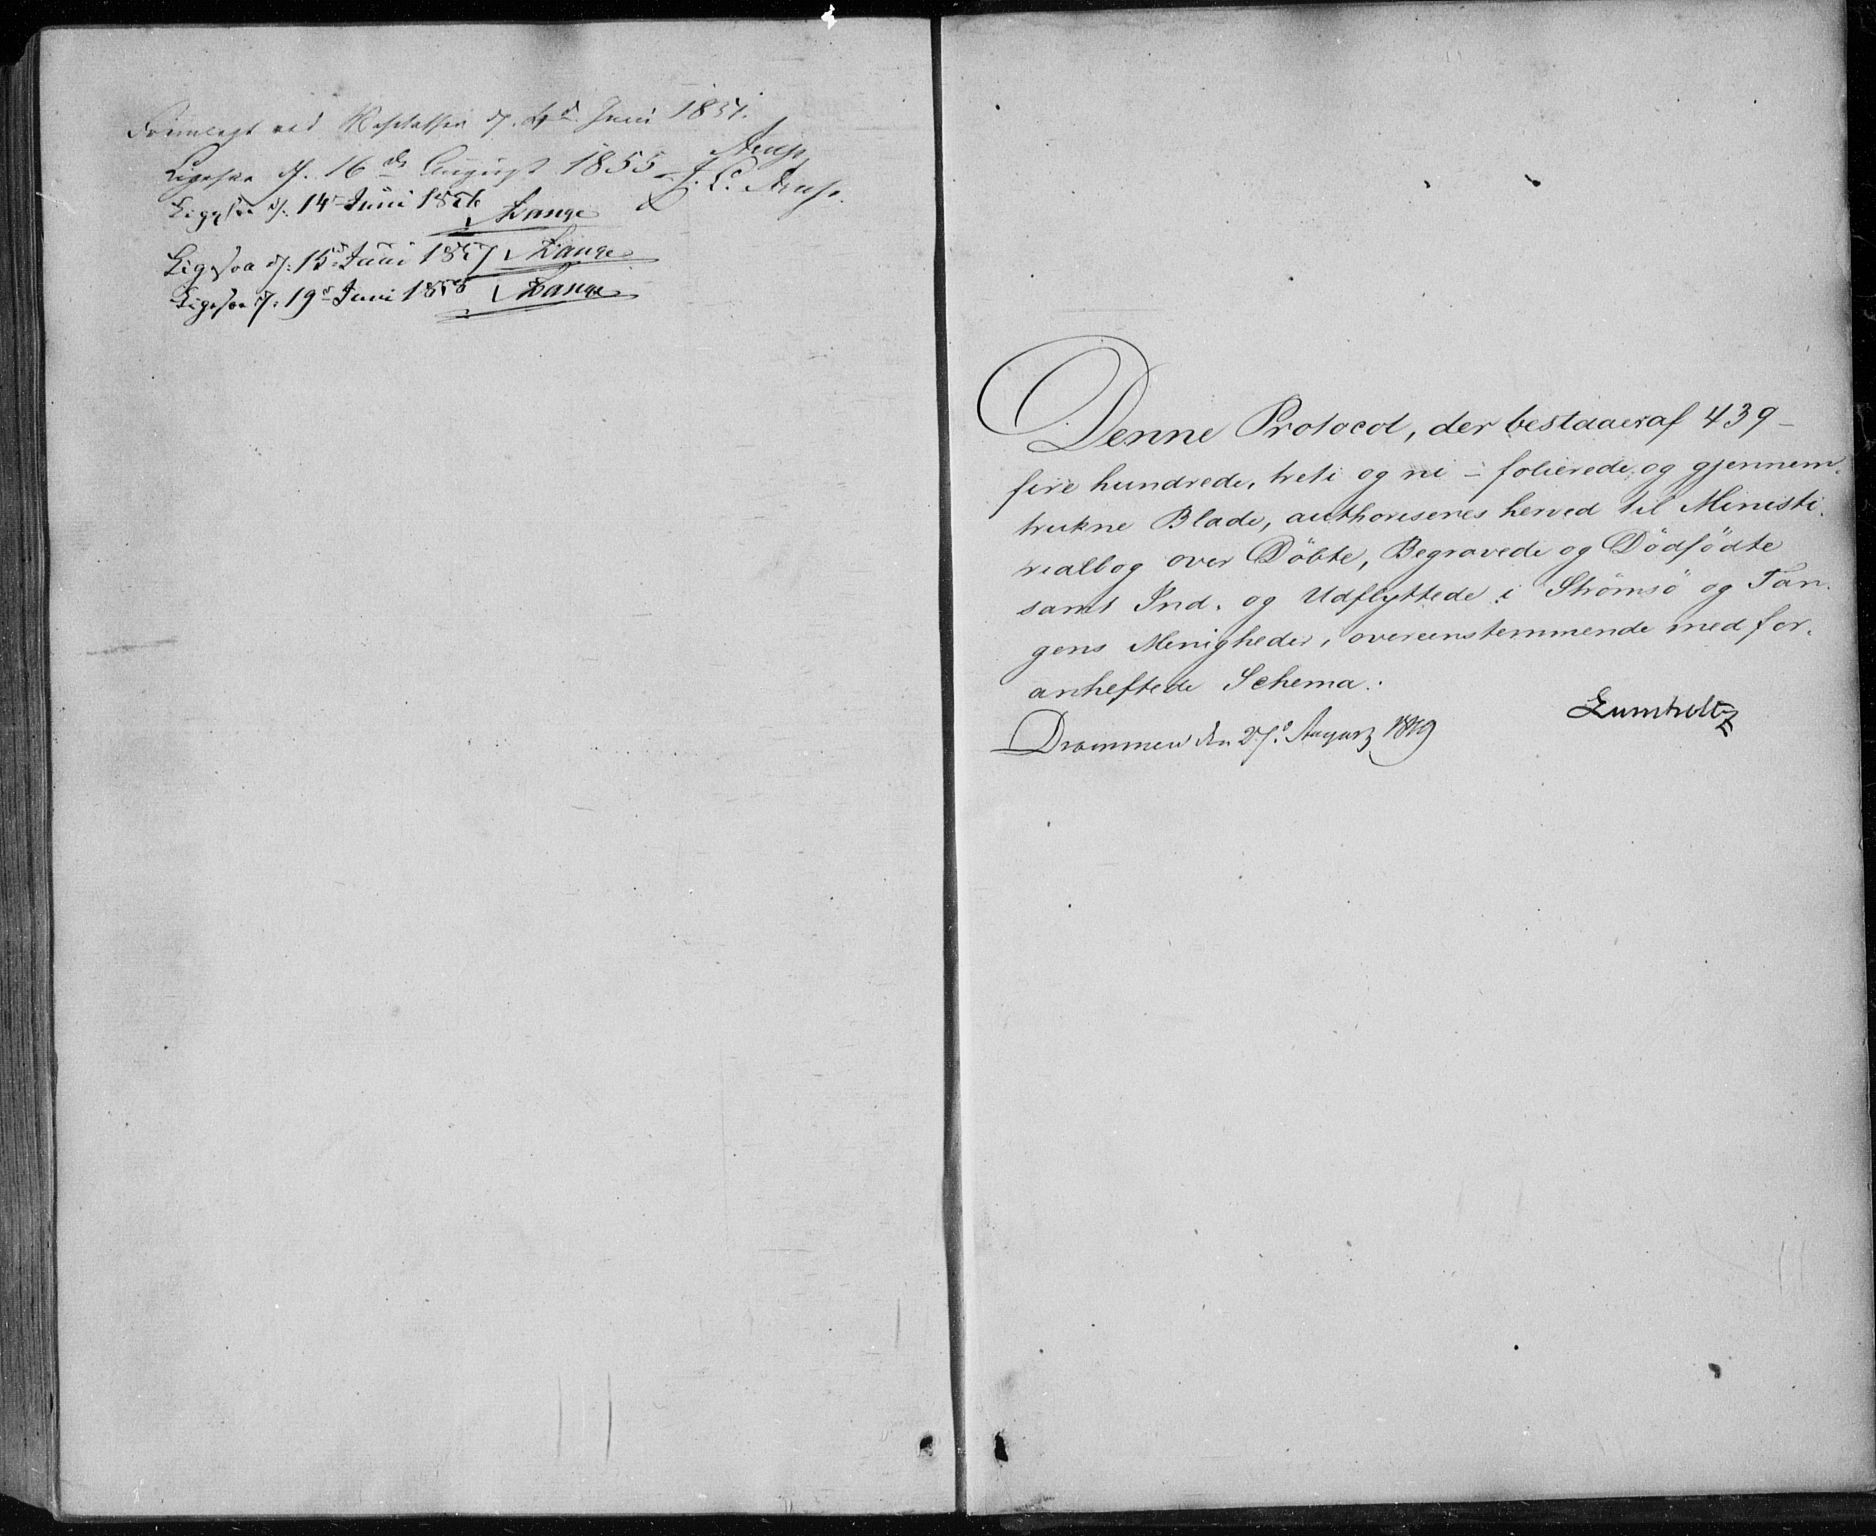 Fremlagt ved Visitatsen d. 4de Juni 1851.
Arup
Ligesaa d. 16de August 1855 – J. L. Arup.
Ligesaa d. 14de Juni 1856 Lange
Ligesaa d. 15de Juni 1857 Lange
Ligesaa d. 19de Juni 1858 Lange
Denne Protocol, der bestaaer af 439 –
fire hundrede, treti og ni – folierede og gjennem-
trukne Blade, authoriseres herved til Ministe-
rialbog over Döbte, Begravede og Dödfödte
samt Ind- og Udflyttede i Strömsö og Tan-
gens Menigheder, overeensstemmende med for-
anheftede Schema.
Lumholtz
Drammen den 27de August 1849